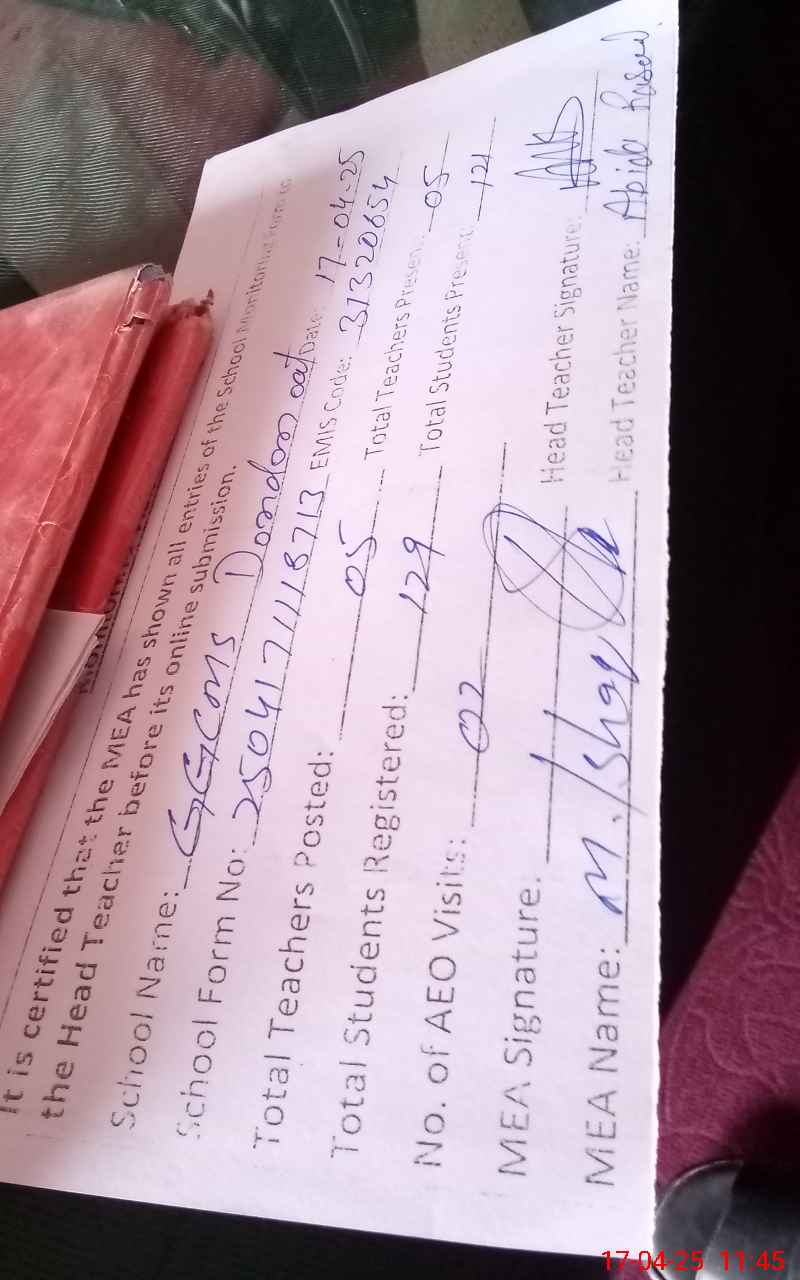 It is certified that the MEA has shown all entries of the School Monitoring Form to
the Head Teacher before its online submission.
School Name: GGCMS Date: 17-04-25
School Form No: 2504171118713 EMIS Code: 31320654
Total Teachers Posted: 05 Total Teachers Present: 05
Total Students Registered: 129 Total Students Present: 121
No. of AEO Visits: 02
MEA Signature: Head Teacher Signature:
MEA Name: M. Ishaq Head Teacher Name: Abida
17-04-25 11:45